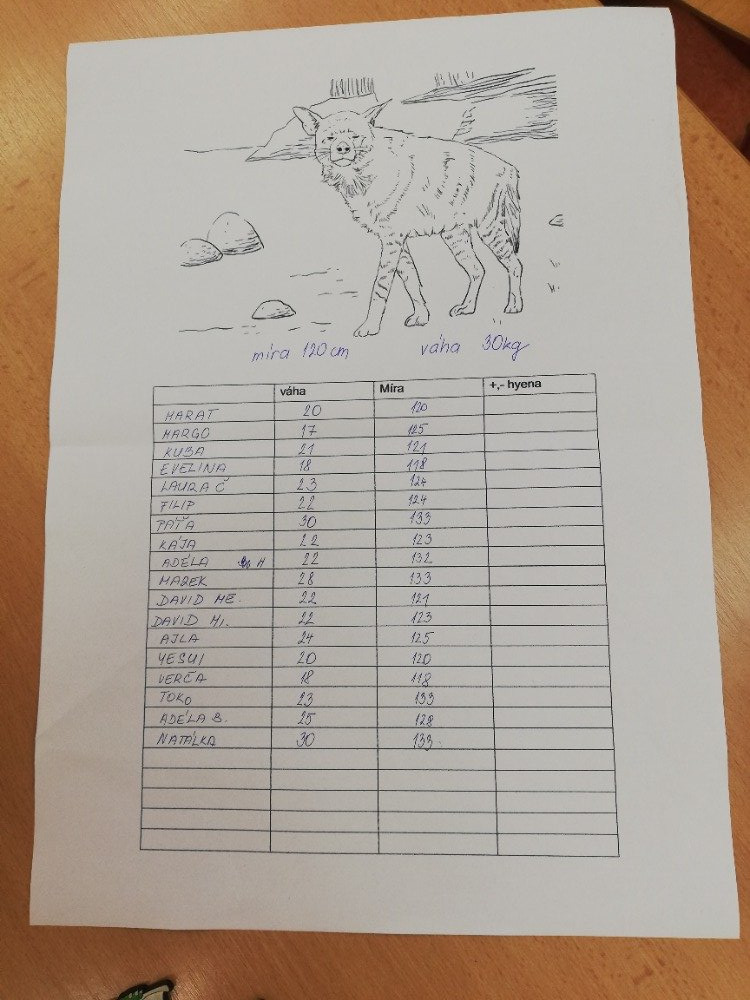 míra 120 cm váha 30kg
váha Míra +,- hyena
MARAT 20 120
MARGO 17 125
KUBA 21 121
EVELINA 18 118
LAURA Č 23 124
FILIP 22 124
PAŤA 30 133
KÁJA 22 123
ADÉLA H 22 132
MAREK 28 133
DAVID ME. 22 121
DAVID MI. 22 123
AJLA 24 125
YESUI 20 120
VERČA 18 118
TOKO 23 133
ADÉLA B. 25 128
NATÁLKA 30 133